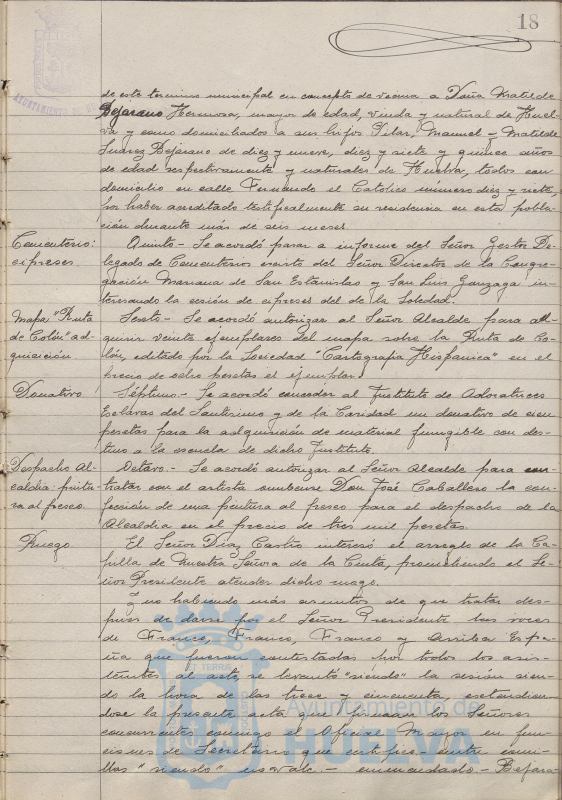 18
de este termino municipal en concepto de vecina a Doña Matilde
Bejarano Hermosa, mayor de edad, viuda y natural de Huel-
va y como domiciliados a sus hijos Pilar, Manuel y Matilde
Suarez Bejarano de diez y nueve, diez y siete y quince años
de edad respectivamente y naturales de Huelva, todos con
domicilio en calle Fernando el Católico número diez y siete,
por haber acreditado testificalmente su residencia en esta pobla-
ción durante más de seis meses.
Cementerio: cipreses
Quinto.- Se acordó pasar a informe del Señor Gestor De-
legado de Cementerios escrito del Señor Director de la Congre-
gación Mariana de San Estanislao y San Luis Gonzaga in-
teresando la cesión de cipreses del de la Soledad.
Mapa "Ruta de Colón" adquisición
Sexto.- Se acordó autorizar al Señor Alcalde para ad-
quirir veinte ejemplares del mapa sobre la Ruta de Co-
lón, editado por la Sociedad "Cartografia Hispanica" en el
precio de ocho pesetas el ejemplar.
Donativo
Séptimo.- Se acordó conceder al Instituto de Adoratrices
Esclavas del Santisimo y de la Caridad un donativo de cien
pesetas para la adquisición de material fungible con des-
tino a la escuela de dicho Instituto.
Despacho Al-
caldia: pintu-
ra al fresco.
Octavo.- Se acordó autorizar al Señor Alcalde para con-
tratar con el artista onubense Don José Caballero la con-
fección de una pintura al fresco para el despacho de la
Alcaldia en el precio de tres mil pesetas.
Ruego
El Señor Diaz Castro interesó el arreglo de la Ca-
pilla de Nuestra Señora de la Cinta, prometiendo el Se-
ñor Presidente atender dicho ruego.
Y no habiendo más asuntos de que tratar des-
pués de darse por el Señor Presidente las voces
de Franco, Franco, Franco y Arriba Espa-
ña que fueron contestadas por todos los asis-
tentes al acto, se levantó "siendo" la sesión sien-
do la hora de las trece y cincuenta, extendien-
dose la presente acta que firman los Señores
concurrentes conmigo el Oficial Mayor en fun-
ciones de Secretario que certifico.- entre comi-
llas "siendo" no vale.- enmendado.- Bejara-
Ayuntamiento de
HUELVA